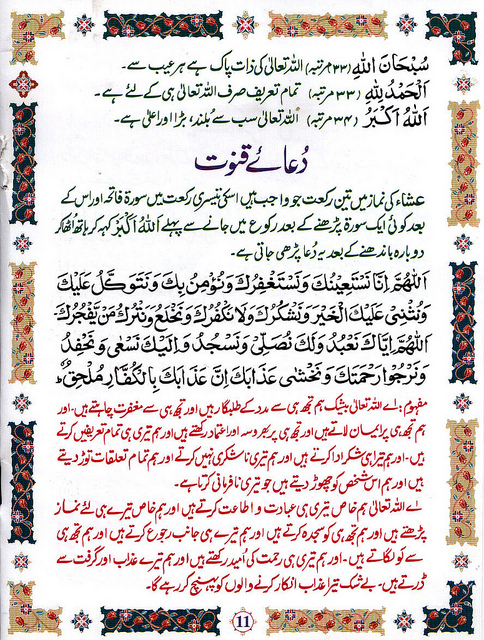 سُبْحَانَ اللّٰهِ (۳۳ مرتبہ) اللہ تعالیٰ کی ذات پاک ہے ہر عیب سے۔
اَلْحَمْدُ لِلّٰهِ (۳۳ مرتبہ) تمام تعریف صرف اللہ تعالیٰ ہی کے لئے ہے۔
اَللّٰهُ اَكْبَرُ (۳۴ مرتبہ) اللہ تعالیٰ سب سے بُلند، بڑا اور اعلیٰ ہے۔
دُعائے قنوت
عشاء کی نماز میں تین رکعت جو واجب ہیں اسکی تیسری رکعت میں سورۃ فاتحہ اور اس کے
بعد کوئی ایک سورۃ پڑھنے کے بعد رکوع میں جانے سے پہلے اَللّٰهُ اَكْبَرُ کہہ کر ہاتھ اُٹھا کر
دوبارہ باندھنے کے بعد یہ دُعا پڑھی جاتی ہے۔
اَللّٰهُمَّ اِنَّا نَسْتَعِيْنُكَ وَنَسْتَغْفِرُكَ وَنُؤْمِنُ بِكَ وَنَتَوَكَّلُ عَلَيْكَ
وَنُثْنِيْ عَلَيْكَ الْخَيْرَ وَنَشْكُرُكَ وَلَا نَكْفُرُكَ وَنَخْلَعُ وَنَتْرُكُ مَنْ يَّفْجُرُكَ
اَللّٰهُمَّ اِيَّاكَ نَعْبُدُ وَلَكَ نُصَلِّيْ وَنَسْجُدُ وَاِلَيْكَ نَسْعٰى وَنَحْفِدُ
وَنَرْجُوْا رَحْمَتَكَ وَنَخْشٰى عَذَابَكَ اِنَّ عَذَابَكَ بِالْكُفَّارِ مُلْحِقٌ ؕ
مفہوم: اے اللہ تعالیٰ بیشک ہم تجھ ہی سے مدد کے طلبگار ہیں اور تجھ ہی سے مغفرت چاہتے ہیں، اور
ہم تجھ ہی پر ایمان لاتے ہیں اور تجھ ہی پر بھروسہ اور اعتماد رکھتے ہیں اور ہم تیری ہی تمام تعریفیں کرتے
ہیں۔ اور ہم تیرا ہی شکر ادا کرتے ہیں اور ہم تیری ناشکری نہیں کرتے اور ہم تمام تعلقات توڑ دیتے
ہیں اور ہم اس شخص کو چھوڑ دیتے ہیں جو تیری نافرمانی کرتا ہے۔
اے اللہ تعالیٰ ہم خاص تیری ہی عبادت و اطاعت کرتے ہیں اور ہم خاص تیرے ہی لئے نماز
پڑھتے ہیں اور ہم تجھ ہی کو سجدہ کرتے ہیں اور ہم تیرے ہی جانب رجوع کرتے ہیں اور ہم تجھ ہی
سے لو لگاتے ہیں۔ اور ہم تیری ہی رحمت کی اُمید رکھتے ہیں اور ہم تیرے عذاب اور گرفت سے
ڈرتے ہیں۔ بے شک تیرا عذاب انکار کرنے والوں کو پہنچ کر رہے گا۔
11